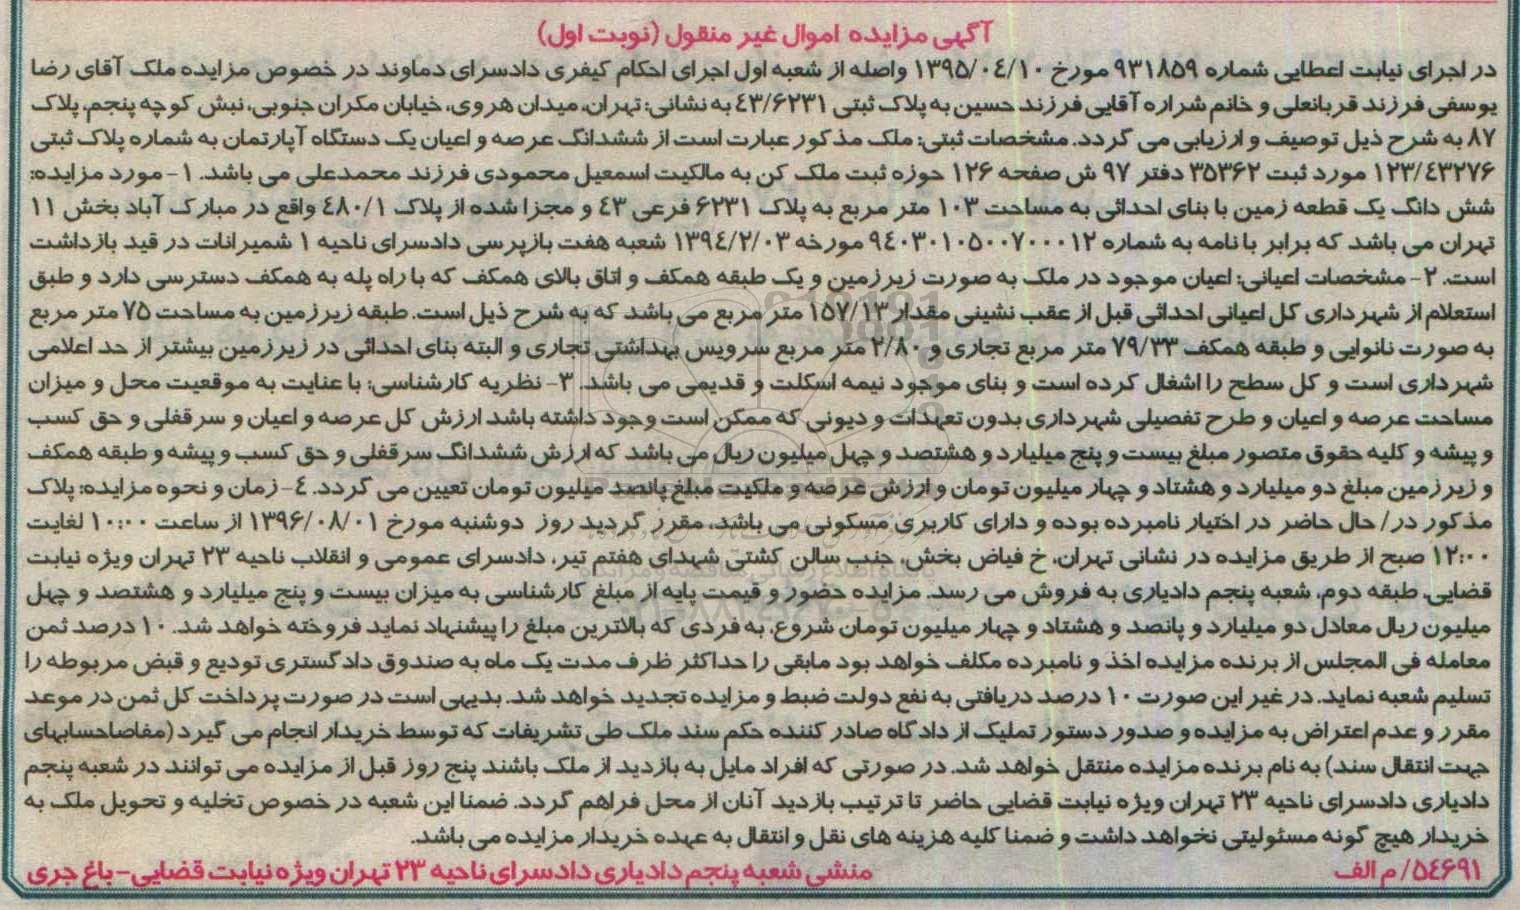 آگهی مزایده اموال غیر منقول (نوبت اول)
در اجرای نیابت اعطایی شماره ۹۳۱۸۵۹ مورخ ۱۳۹۵/۰۴/۱۰ واصله از شعبه اول اجرای احکام کیفری دادسرای دماوند در خصوص مزایده ملک آقای رضا
یوسفی فرزند قربانعلی و خانم شراره آقایی فرزند حسین به پلاک ثبتی ۴۳/۶۲۳۱ به نشانی: تهران، میدان هروی، خیابان مکران جنوبی، نبش کوچه پنجم، پلاک
۸۷ به شرح ذیل توصیف و ارزیابی می گردد. مشخصات ثبتی: ملک مذکور عبارت است از ششدانگ عرصه و اعیان یک دستگاه آپارتمان به شماره پلاک ثبتی
۱۲۳/۴۳۲۷۶ مورد ثبت ۳۵۳۶۲ دفتر ۹۷ ش صفحه ۱۲۶ حوزه ثبت ملک کن به مالکیت اسمعیل محمودی فرزند محمدعلی می باشد. ۱- مورد مزایده:
شش دانگ یک قطعه زمین با بنای احداثی به مساحت ۱۰۳ متر مربع به پلاک ۶۲۳۱ فرعی ۴۳ و مجزا شده از پلاک ۴۸۰/۱ واقع در مبارک آباد بخش ۱۱
تهران می باشد که برابر با نامه به شماره ۹۴۰۳۰۱۰۵۰۰۷۰۰۰۱۲ مورخه ۱۳۹۴/۲/۰۳ شعبه هفت بازپرسی دادسرای ناحیه ۱ شمیرانات در قید بازداشت
است. ۲- مشخصات اعیانی: اعیان موجود در ملک به صورت زیرزمین و یک طبقه همکف و اتاق بالای همکف که با راه پله به همکف دسترسی دارد و طبق
استعلام از شهرداری کل اعیانی احداثی قبل از عقب نشینی مقدار ۱۵۷/۱۳ متر مربع می باشد که به شرح ذیل است. طبقه زیرزمین به مساحت ۷۵ متر مربع
به صورت نانوایی و طبقه همکف ۷۹/۳۳ متر مربع تجاری و ۲/۸۰ متر مربع سرویس بهداشتی تجاری و البته بنای احداثی در زیرزمین بیشتر از حد اعلامی
شهرداری است و کل سطح را اشغال کرده است و بنای موجود نیمه اسکلت و قدیمی می باشد. ۳- نظریه کارشناسی: با عنایت به موقعیت محل و میزان
مساحت عرصه و اعیان و طرح تفصیلی شهرداری بدون تعهدات و دیونی که ممکن است وجود داشته باشد ارزش کل عرصه و اعیان و سرقفلی و حق کسب
و پیشه و کلیه حقوق متصور مبلغ بیست و پنج میلیارد و هشتصد و چهل میلیون ریال می باشد که ارزش ششدانگ سرقفلی و حق کسب و پیشه و طبقه همکف
و زیرزمین مبلغ دو میلیارد و هشتاد و چهار میلیون تومان و ارزش عرصه و ملکیت مبلغ پانصد میلیون تومان تعیین می گردد. ۴- زمان و نحوه مزایده: پلاک
مذکور در/ حال حاضر در اختیار نامبرده بوده و دارای کاربری مسکونی می باشد، مقرر گردید روز دوشنبه مورخ ۱۳۹۶/۰۸/۰۱ از ساعت ۱۰:۰۰ لغایت
۱۲:۰۰ صبح از طریق مزایده در نشانی تهران، خ فیاض بخش، جنب سالن کشتی شهدای هفتم تیر، دادسرای عمومی و انقلاب ناحیه ۲۳ تهران ویژه نیابت
قضایی، طبقه دوم، شعبه پنجم دادیاری به فروش می رسد. مزایده حضور و قیمت پایه از مبلغ کارشناسی به میزان بیست و پنج میلیارد و هشتصد و چهل
میلیون ریال معادل دو میلیارد و پانصد و هشتاد و چهار میلیون تومان شروع، به فردی که بالاترین مبلغ را پیشنهاد نماید فروخته خواهد شد. ۱۰ درصد ثمن
معامله فی المجلس از برنده مزایده اخذ و نامبرده مکلف خواهد بود مابقی را حداکثر ظرف مدت یک ماه به صندوق دادگستری تودیع و قبض مربوطه را
تسلیم شعبه نماید. در غیر این صورت ۱۰ درصد دریافتی به نفع دولت ضبط و مزایده تجدید خواهد شد. بدیهی است در صورت پرداخت کل ثمن در موعد
مقرر و عدم اعتراض به مزایده و صدور دستور تملیک از دادگاه صادر کننده حکم سند ملک طی تشریفات که توسط خریدار انجام می گیرد (مفاصاحسابهای
جهت انتقال سند) به نام برنده مزایده منتقل خواهد شد. در صورتی که افراد مایل به بازدید از ملک باشند پنج روز قبل از مزایده می توانند در شعبه پنجم
دادیاری دادسرای ناحیه ۲۳ تهران ویژه نیابت قضایی حاضر تا ترتیب بازدید آنان از محل فراهم گردد. ضمنا این شعبه در خصوص تخلیه و تحویل ملک به
خریدار هیچ گونه مسئولیتی نخواهد داشت و ضمنا کلیه هزینه های نقل و انتقال به عهده خریدار مزایده می باشد.
۵۴۶۹۱/ م الف
منشی شعبه پنجم دادیاری دادسرای ناحیه ۲۳ تهران ویژه نیابت قضایی- باغ جری